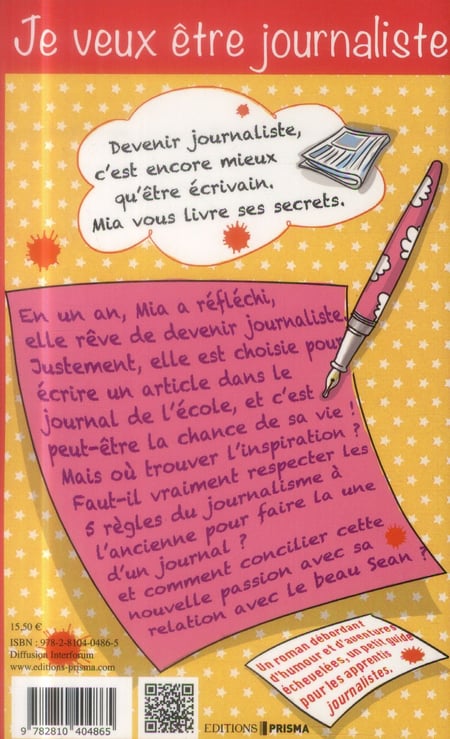 Je veux être journaliste
Devenir journaliste,
c'est encore mieux
qu'être écrivain.
Mia vous livre ses secrets.
En un an, Mia a réfléchi,
elle rêve de devenir journaliste.
Justement, elle est choisie pour
écrire un article dans le
journal de l'école, et c'est
peut-être la chance de sa vie !
Mais où trouver l'inspiration ?
Faut-il vraiment respecter les
5 règles du journalisme à
l'ancienne pour faire la une
d'un journal ?
et comment concilier cette
nouvelle passion avec sa
relation avec le beau Sean ?
Un roman débordant
d'humour et d'aventures
échevelées, un petit guide
pour les apprentis
journalistes.
15,50 €
ISBN : 978-2-8104-0486-5
Diffusion Interforum
www.editions-prisma.com
9 782810 404865
EDITIONS PRISMA